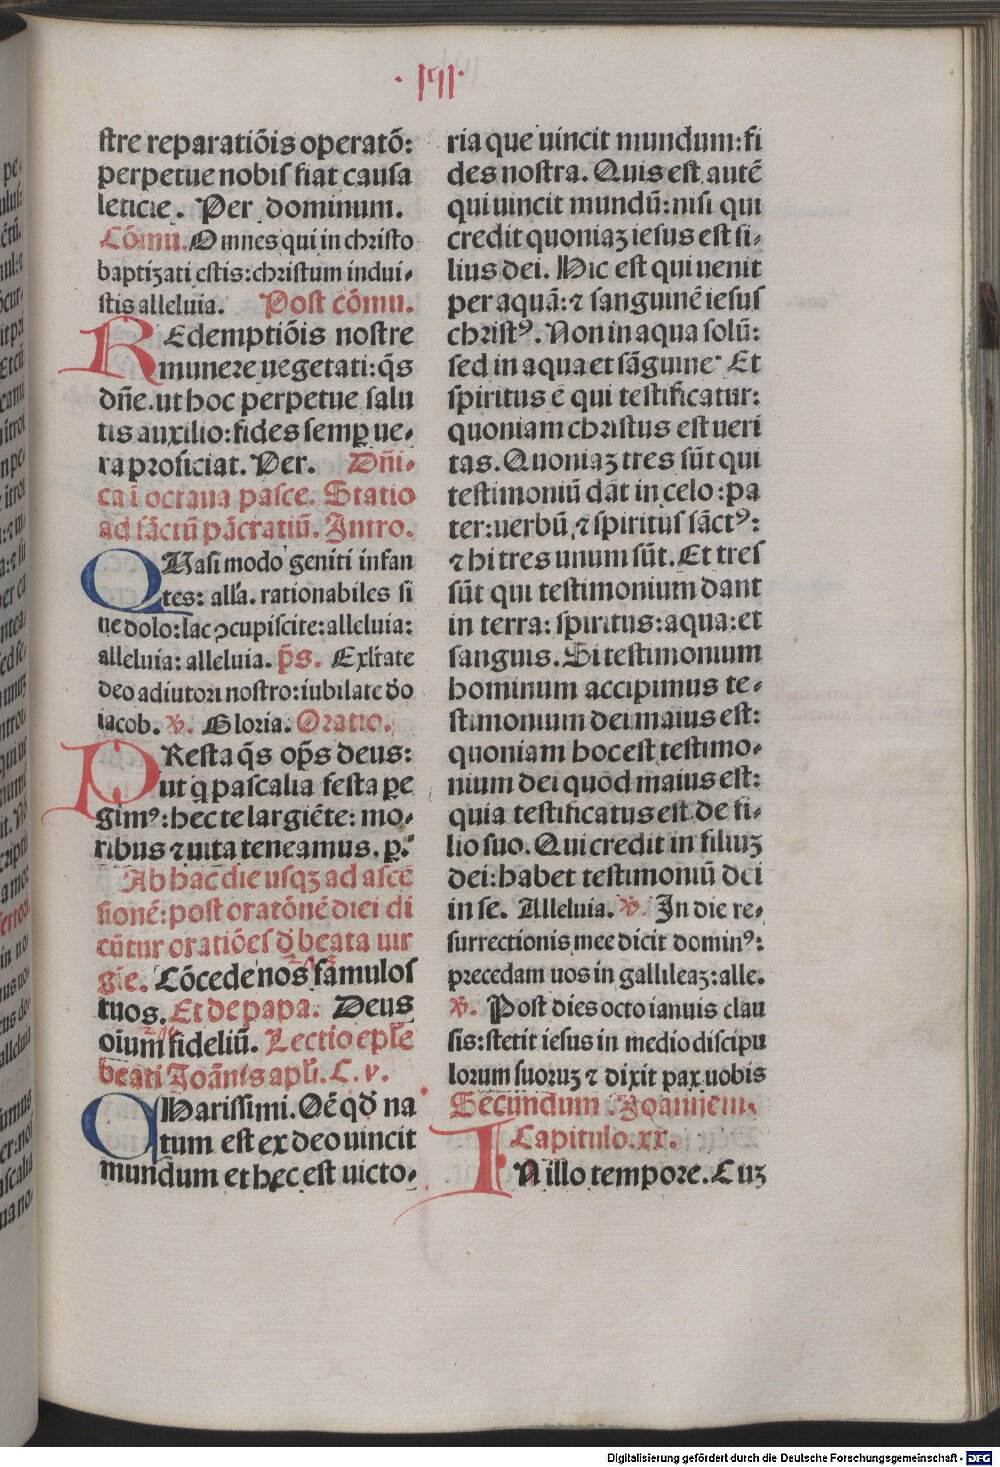 stre reparatiõis operatõ:
perpetue nobis fiat causa
leticie. Per dominum.
Cõmu. Omnes qui in christo
baptizati estis: christum indui-
stis alleluia. Post cõmu.
REdemptiõis nostre
munere uegetati: q̃s
dñe. ut hoc perpetue salu
tis auxilio: fides semꝑ ue-
ra proficiat. Per. Dñi-
ca ĩ octaua pasce. Statio
ad sãctũ pãcratiũ. Intro.
QUasi modo geniti infan
tes: all'a. rationabiles si
ne dolo: lac ꝯcupiscite: alleluia:
alleluia: alleluia. p̃s. Exltate
deo adiutori nostro: iubilate dõ
iacob. ℣. Gloria. Oratio.
PResta q̃s op̃s deus:
ut q̃ pascalia festa ꝑe
gimꝰ: hec te largiẽte: mo-
ribus ⁊ uita teneamus. p̃.
Ab hac die usqꝫ ad ascẽ
sionẽ: post oratõnẽ diei di
cũtur oratiões d̃ beata uir
gĩe. Cõcede nos famulos
tuos. Et de papa. Deus
oiũm fideliũ. Lectio epl̃e
beati Joãnis apl̃i. C. v.
CHarissimi. Oẽ qd̃ na
tum est ex deo uincit
mundum et hec est uicto-
ria que uincit mundum: fi
des nostra. Quis est autẽ
qui uincit mundũ: nisi qui
credit quoniaꝫ iesus est fi-
lius dei. Hic est qui uenit
per aquã: ⁊ sanguinẽ iesus
christꝰ. Non in aqua solũ:
sed in aqua et sãguine. Et
spiritus ẽ qui testificatur:
quoniam christus est ueri
tas. Quoniaꝫ tres sũt qui
testimoniũ dãt in celo: pa
ter: uerbũ ⁊ spiritus sãctꝰ:
⁊ hi tres unum sũt. Et tres
sũt qui testimonium dant
in terra: spiritus: aqua: et
sanguis. Si testimonium
hominum accipimus te-
stimonium dei maius est:
quoniam hoc est testimo-
nium dei quod maius est:
quia testificatus est de fi-
lio suo. Qui credit in filiuꝫ
dei: habet testimoniũ dei
in se. Alleluia. ℣. In die re-
surrectionis mee dicit dominꝰ:
precedam uos in gallileaꝫ: alle.
℣. Post dies octo ianuis clau
sis: stetit iesus in medio discipu
lorum suoruꝫ ⁊ dixit pax uobis
Secundum Joannem.
Capitulo. xx.
IN illo tempore. Cuꝫ
Digitalisierung gefördert durch die Deutsche Forschungsgemeinschaft - DFG